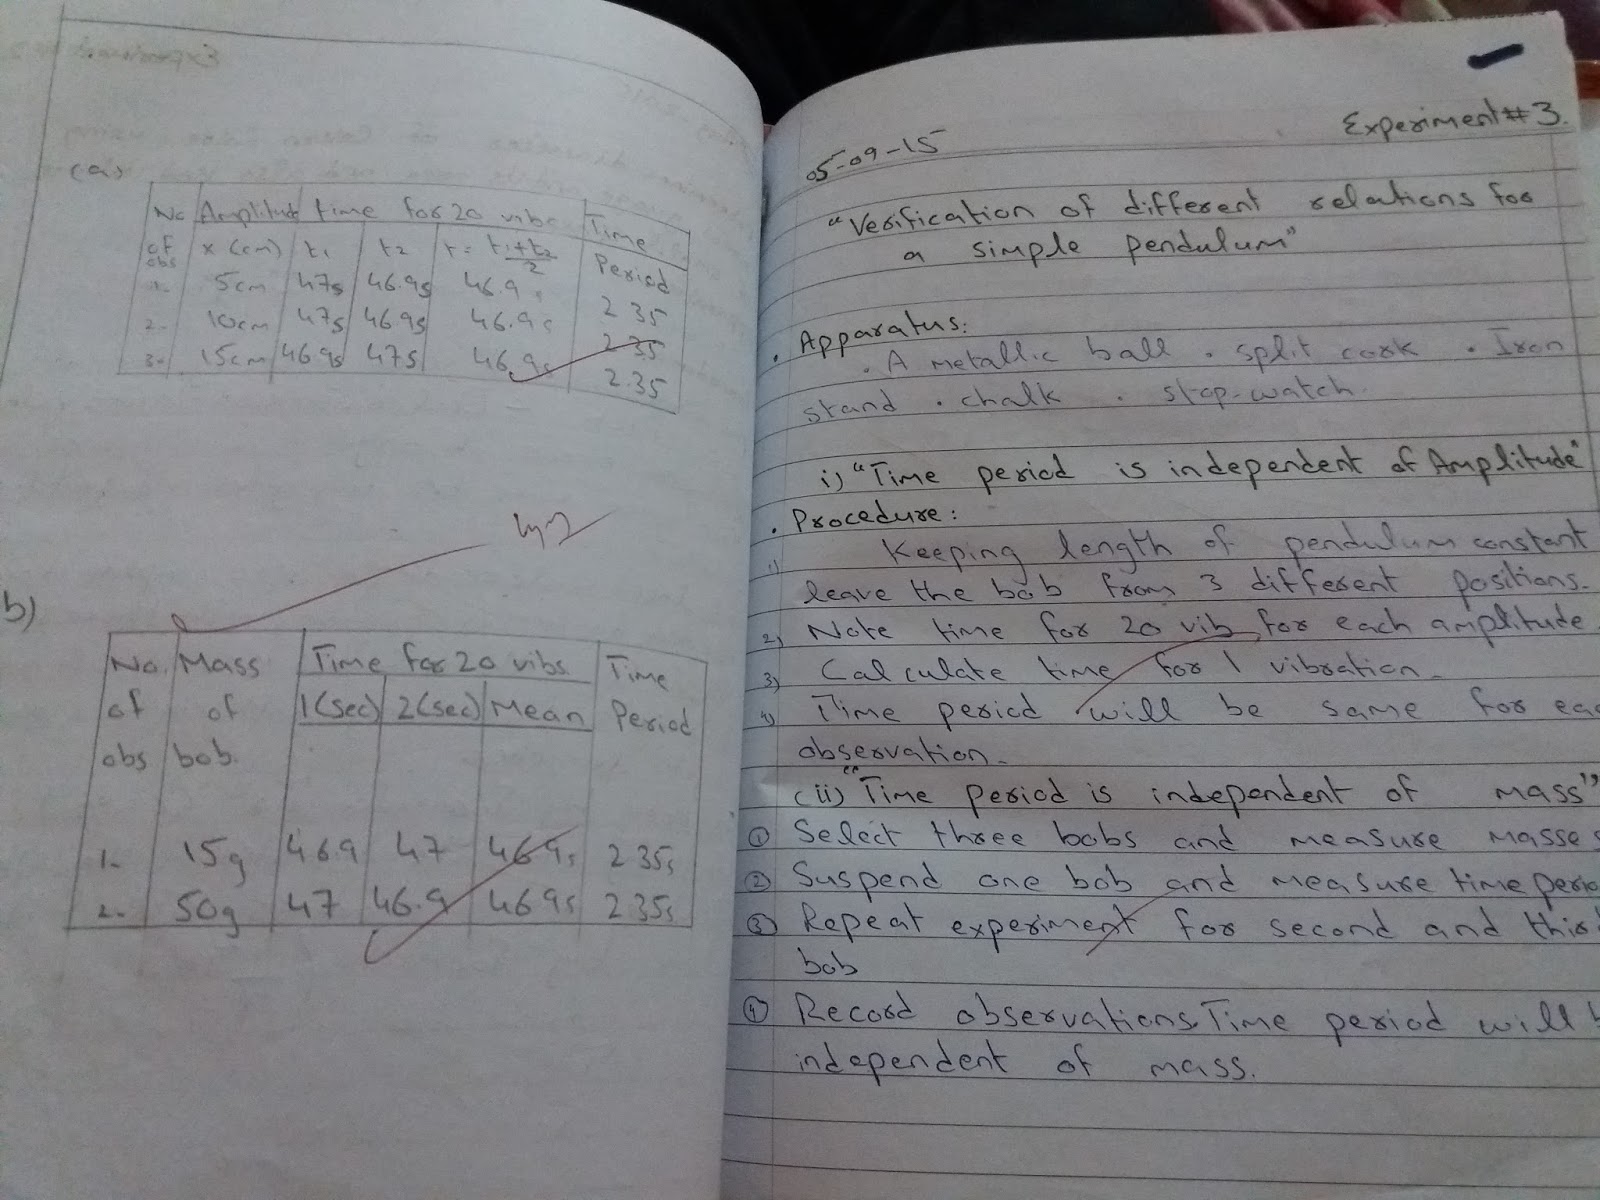 (a)
No Amplitude time for 20 vibs Time
of x (cm) t1 t2 t = t1+t2/2 Period
obs
1- 5cm 47s 46.9s 46.9s 2 35
2- 10cm 47s 46.9s 46.9s 2 35
3- 15cm 46.9s 47s 46.9s 2.35
b)
No. Mass Time for 20 vibs. Time
of of 1(sec) 2(sec) Mean Period
obs bob.
1- 15g 46.9 47 46.9s 2 35s
2- 50g 47 46.9 46 9s 2 35s
Experiment#3.
05-09-15
"Verification of different relations for
a simple pendulum"
. Apparatus:
. A metallic ball . split cork . Iron
stand . chalk . stop-watch.
i) "Time period is independent of Amplitude"
. Procedure:
1) Keeping length of pendulum constant
leave the bob from 3 different positions.
2) Note time for 20 vib, for each amplitude
3) Calculate time for 1 vibration.
4) Time period will be same for eac
observation.
(ii) "Time period is independent of mass"
① Select three bobs and measure masses
② Suspend one bob and measure time perio
③ Repeat experiment for second and third
bob
④ Record observations. Time period will b
independent of mass.